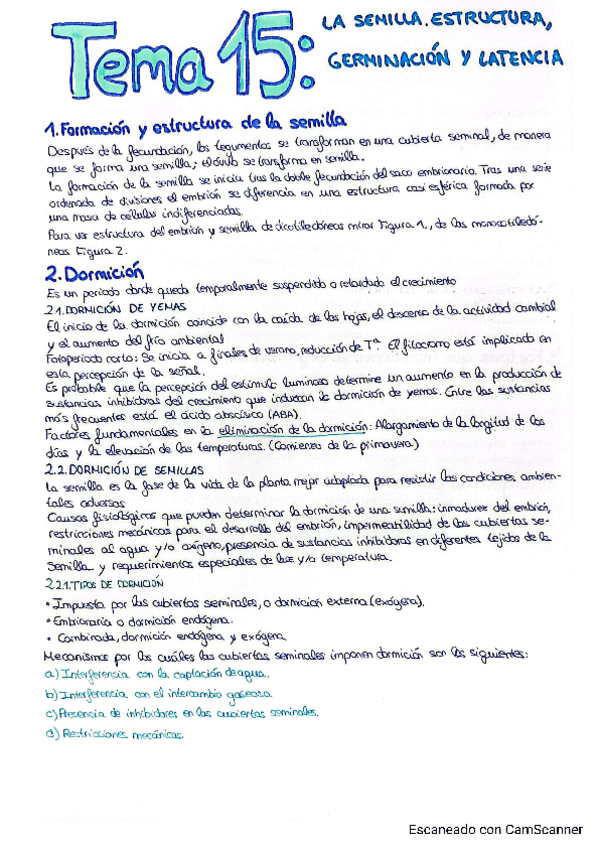 Tema 15:
LA SEMILLA. ESTRUCTURA,
GERMINACIÓN Y LATENCIA
1. Formación y estructura de la semilla
Después de la fecundación, los tegumentos se transforman en una cubierta seminal, de manera
que se forma una semilla; el óvulo se transforma en semilla.
La formación de la semilla se inicia tras la doble fecundación del saco embrionario. Tras una serie
ordenada de divisiones el embrión se diferencia en una estructura casi esférica formada por
una masa de células indiferenciadas.
Para ver estructura del embrión y semilla de dicotiledóneas mirar Figura 1., de las monocotiledó-
neas Figura 2.
2. Dormición
Es un periodo donde queda temporalmente suspendido o retardado el crecimiento
2.1. DORMICIÓN DE YEMAS
El inicio de la dormición coincide con la caída de las hojas, el descenso de la actividad cambial
y el aumento del frío ambiental
Fotoperiodo corto: Se inicia a finales de verano, reducción de Tª. El fitocromo está implicado en
esta percepción de la señal.
Es probable que la percepción del estímulo luminoso determine un aumento en la producción de
sustancias inhibidoras del crecimiento que induzcan la dormición de yemas. Entre las sustancias
más frecuentes está el ácido abscísico (ABA).
Factores fundamentales en la eliminación de la dormición: Alargamiento de la longitud de los
días y la elevación de las temperaturas. (Comienzo de la primavera)
2.2. DORMICIÓN DE SEMILLAS
La semilla es la fase de la vida de la planta mejor adaptada para resistir las condiciones ambien-
tales adversas
Causas fisiológicas que pueden determinar la dormición de una semilla: inmadurez del embrión,
restricciones mecánicas para el desarrollo del embrión, impermeabilidad de las cubiertas se-
minales al agua y/o oxígeno, presencia de sustancias inhibidoras en diferentes tejidos de la
semilla y requerimientos especiales de luz y/o temperatura.
2.2.1. TIPOS DE DORMICIÓN
• Impuesta por las cubiertas seminales, o dormición externa (exógena).
• Embrionaria o dormición endógena.
• Combinada, dormición endógena y exógena
Mecanismos por los cuáles las cubiertas seminales imponen dormición son los siguientes:
a) Interferencia con la captación de agua.
b) Interferencia con el intercambio gaseoso.
c) Presencia de inhibidores en las cubiertas seminales.
d) Restricciones mecánicas.
Escaneado con CamScanner